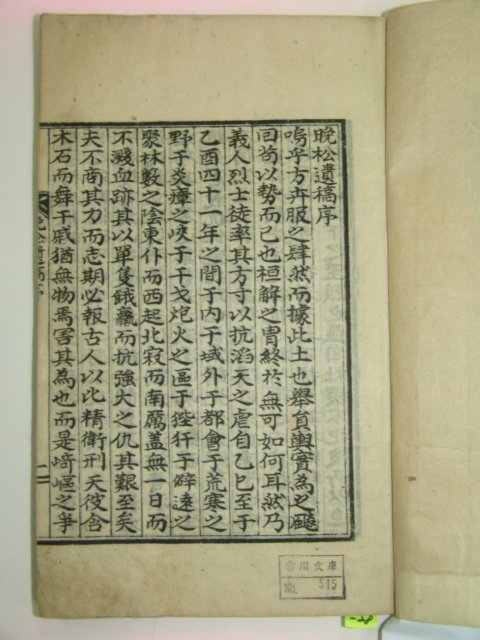 晩松遺稿序
嗚乎方卉服之肆然而據此土也舉員輿實為之颺
回苟以勢而已也桓解之胄終於無可如何耳然乃
義人烈士徒率其方寸以抗滔天之虐自乙巳至于
乙酉四十一年之間于内于域外于都會于荒寒之
野于炎瘴之峽于干戈炮火之區于狴犴于僻遠之
聚林藪之陰東仆而西起北寂而南厲盖無一日而
不濺血跡其以單隻餓羸而抗強大之仇其艱至矣
夫不啇其力而志期必報古人以比精衛刑天彼含
木石而舞干戚猶無物焉害其為也而是﨑嶇之爭
晩松遺稿序
一
No. 545